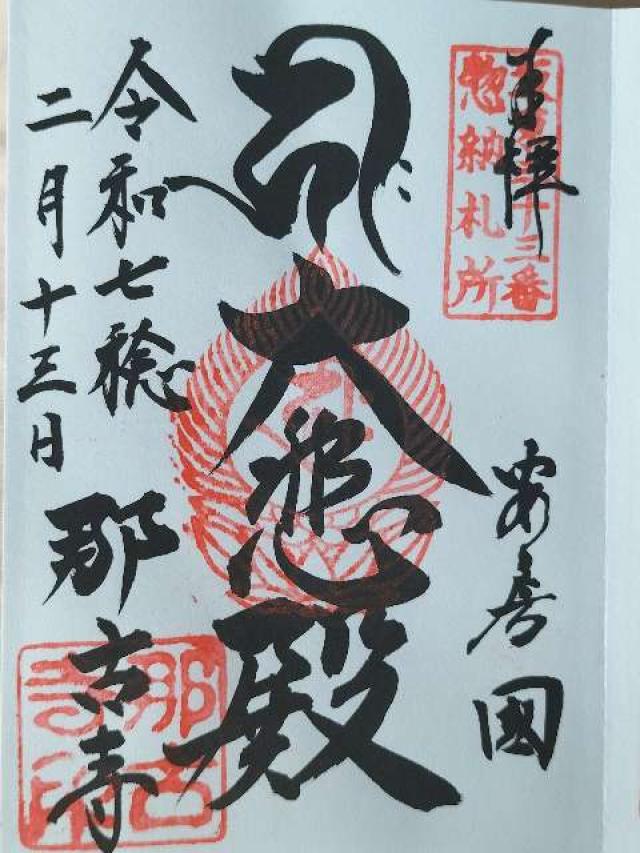 奉拝
坂東三十三番
惣納札所
安房國
大悲殿
令和七稔
二月十三日
那古寺
那古
寺印